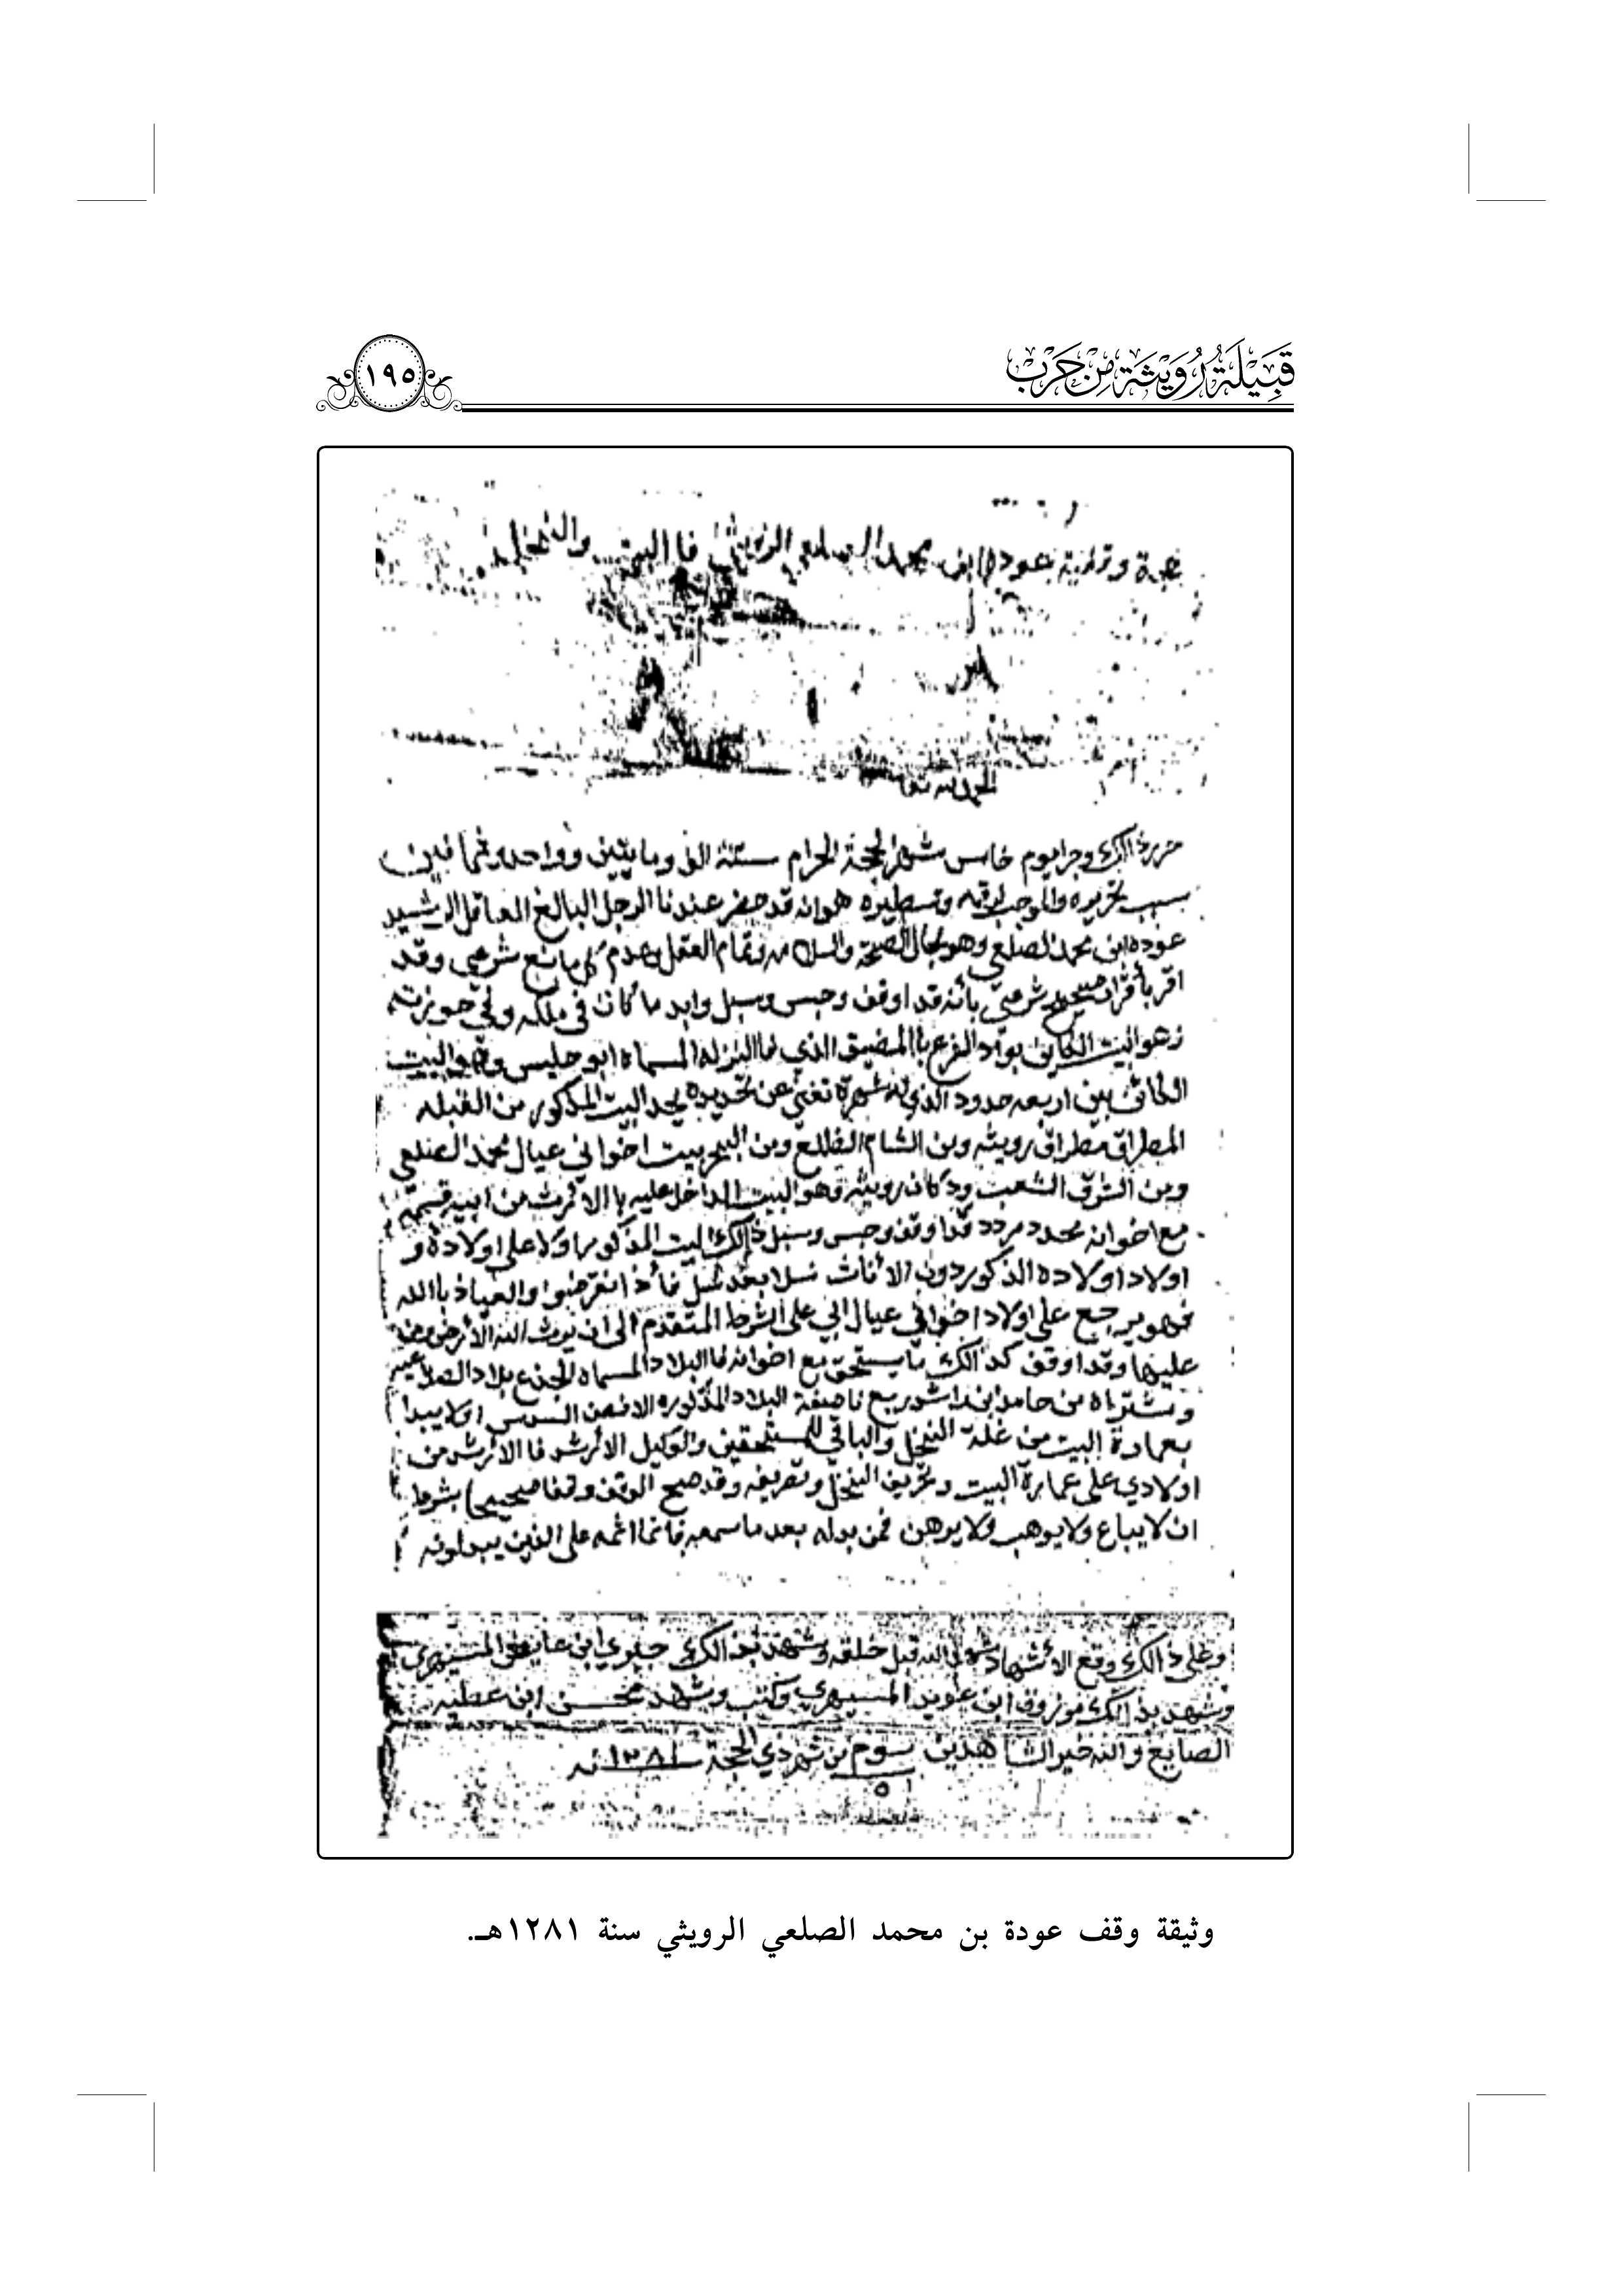 قَبِيْلَةُ رُوَيْثَة مِنْ حَرْب
١٩٥
عودة ابن محمد الصلعي الرويثي فا البيت والنخل
الحمد لله
حرر ذالك وجرا يوم خامس شهر الحجة الحرام سنة الف ومايتين وواحد وثمانين
سبب تحريره والموجب لرقمه وتسطيره هو انه قد حضر عندنا الرجل البالغ العاقل الرشيد
عوده ابن محمد الصلعي وهو بحال الصحة والسلامه وتمام العقل وعدم كل مانع شرعي وقد
اقر بأقرار صحيح شرعي بأنه قد اوقف وحبس وسبل وابد ما كان في ملكه وفي حويزته
وهو البيت الكاين بواد الفرع باالمضيق الذي فا النزله المسماه ابو حليس وهو البيت
الكائن بين اربعه حدود الذي له شهرة تغني عن تحديده يحد البيت المذكور من القبله
المطراق مطراق رويثه ومن الشام الضلع ومن البحر بيت اخواني عيال محمد الصلعي
ومن الشرق الشعب ودكان رويثه وهو البيت الداخل عليه باالأرث من ابيه قسمته
مع اخوانه محدد مردد قد اوقف وحبس وسبل ذالك البيت المذكور اولا على اولاده و
اولاد اولاده الذكور دون الأناث نسلا بعد نسل فأذا انقرضوا والعياذ باالله
فهو يرجع على اولاد اخواني عيال ابي على الشرط المتقدم الى ان يرث الله الأرض ومن
عليها وقد اوقف كذالك ما يستحق مع اخوانه فا البلاد المسماه الجذع بلاد
ومشتراه من حامد ابن راشد ربع ناصفة البلاد المذكوره اولا يبدا
بعمارة البيت من غلة النخل والباقي للمستحقين والوكيل الأرشد فا الأرشد من
اولادي على عمارة البيت وتصريفه وقد صح الوقف وقفا صحيحا بشرط
ان لا يباع ولا يوهب ولا يرهن فمن بدله بعد ما سمعه فانما اثمه على الذين يبدلونه
وعلى ذالك وقع الأشهاد قبل خلقه وشهد بذالك ابن عايض
وشهد بذالك مرزوق ابن عويد وكتب وشهد محسن ابن عطيه
الصايغ والله خير الشاهدين يوم من شهر ذي الحجة سنة ١٢٨١
٥
وثيقة وقف عودة بن محمد الصلعي الرويثي سنة ١٢٨١هـ.